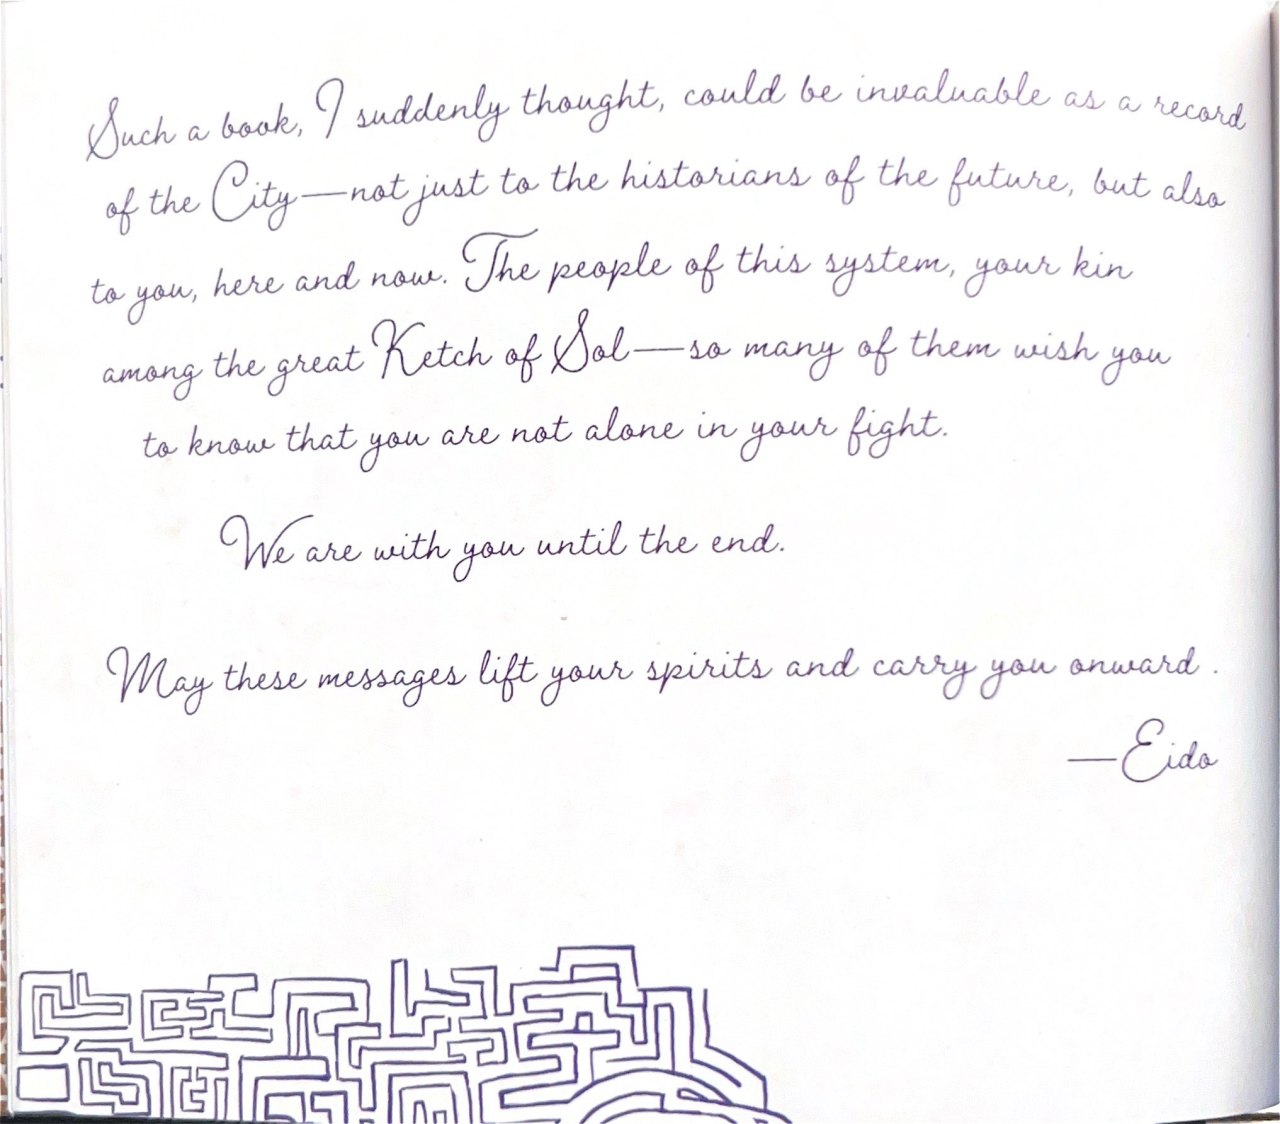 Such a book, I suddenly thought, could be invaluable as a record
of the City—not just to the historians of the future, but also
to you, here and now. The people of this system, your kin
among the great Ketch of Sol—so many of them wish you
to know that you are not alone in your fight.
We are with you until the end.
May these messages lift your spirits and carry you onward.
—Eido